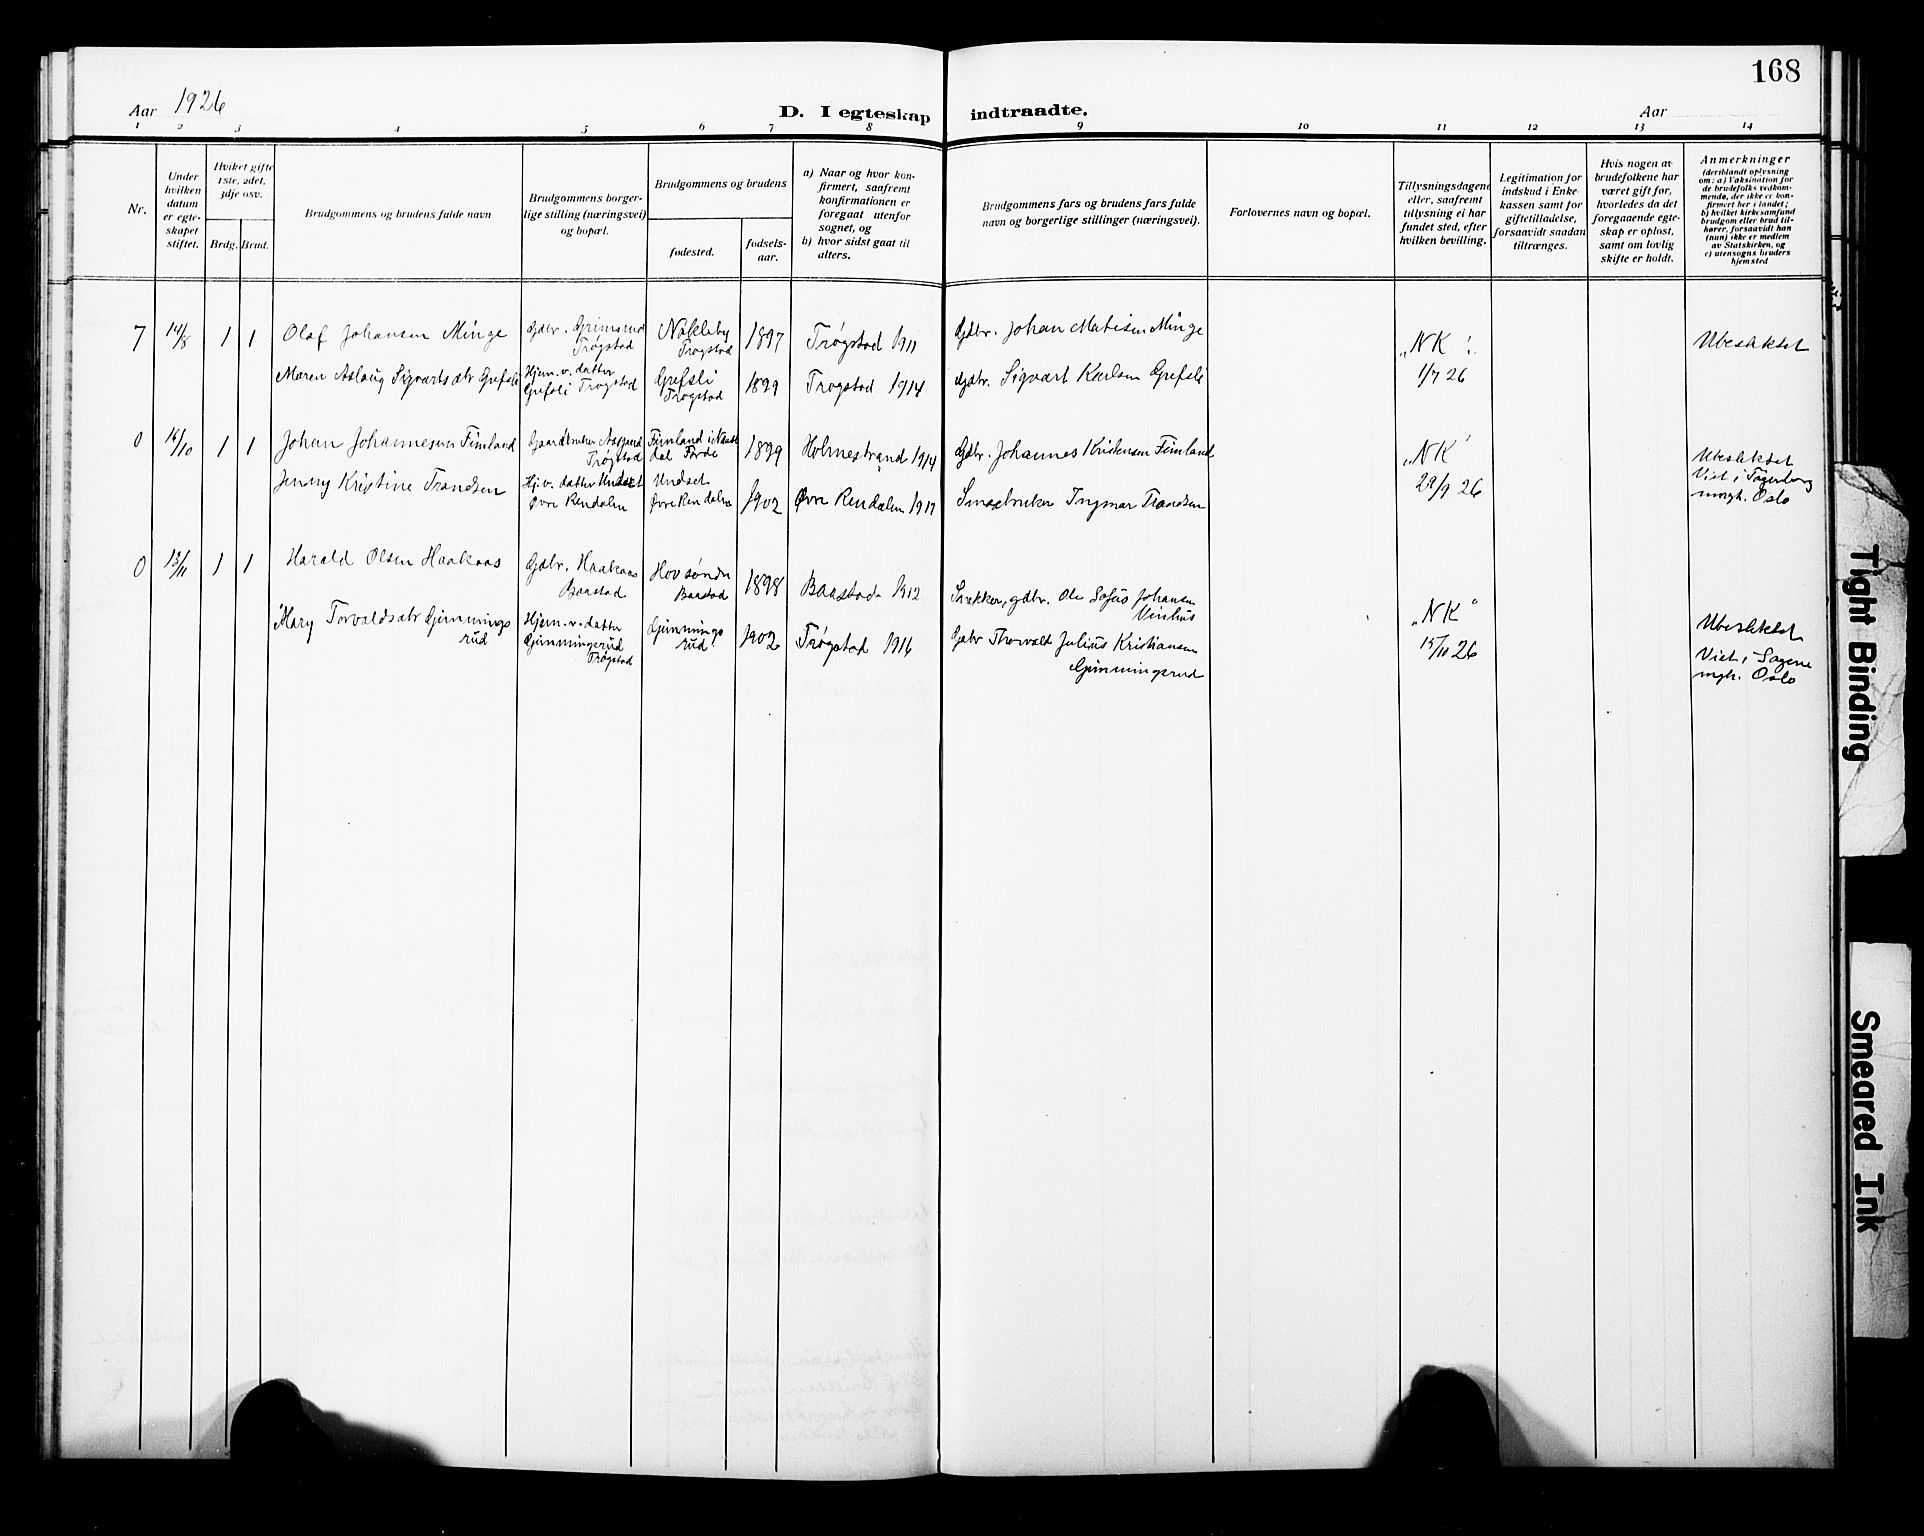 168
Aar 1926
D. I egteskap indtraadte.
Aar
1 2 3 4 5 6 7 8 9 10 11 12 13 14
Nr.
Under hvilken datum er egteskapet stiftet.
Hvilket gifte 1ste, 2det, 3dje osv.
Brdg. Brud.
Brudgommens og brudens fulde navn
Brudgommens borgerlige stilling (næringsvei) og bopæl.
Brudgommens og brudens
fødested.
fødselsaar.
a) Naar og hvor konfirmert, saafremt konfirmationen er foregaat utenfor sognet, og
b) hvor sidst gaat til alters.
Brudgommens fars og brudens fars fulde navn og borgerlige stillinger (næringsvei).
Forlovernes navn og bopæl.
Tillysningsdagene eller, saafremt tillysning ei har fundet sted, efter hvilken bevilling.
Legitimation for indskud i Enkekassen samt for giftetilladelse, forsaavidt saadan tiltrænges.
Hvis nogen av brudefolkene har været gift før, hvorledes da det foregaaende egteskap er opløst, samt om lovlig skifte er holdt.
Anmerkninger
(deriblandt oplysning om: a) Vaksination for de brudefolks vedkommende, der ikke er konfirmert her i landet; b) hvilket kirkesamfund brudgom eller brud tilhører, forsaavidt han (hun) ikke er medlem av Statskirken, og c) utensogns bruders hjemsted
7 14/8 1 1 Olaf Johansen Minge Gdbr. Grimsrud Trøgstad Nøkleby Trøgstad 1897 Trøgstad 1911 Gdbr. Johan Matisen Minge "NK". 1/7 26 Ubeslektet
Maren Aslaug Sigvartsdtr Grefsli Hjem.v. datter Grefsli Trøgstad Grefsli Trøgstad 1899 Trøgstad 1914 Gdbr. Sigvart Karlsen Grefsli
0 14/10 1 1 Johan Johannesen Fimland Gaardbruker Trøgstad Fimland i dal Førde 1899 Holmestrand 1914 Gdbr. Johannes Kristensen Fimland "NK" 29/9 26 Ubeslektet
Viet i Fagerborg mngh. Oslo
Jenny Kristine Trondsen Hj.v. datter Undset Øvre Rendalen Undset Øvre Rendalen 1902 Øvre Rendalen 1917 Smaabruker Ingmar Trondsen
0 13/11 1 1 Harald Olsen Haakaas Gdbr. Haakaas Baastad Hov søndre Baastad 1898 Baastad 1912 Snekker, gdbr. Ole Sofus Johansen "NK" 15/10 26 Ubeslektet
Viet i Sagene mngh. Oslo
Mary Torvaldsdtr Gjimmingsrud Hjem.v. datter Gjimmingsrud Trøgstad Gjimmingsrud 1902 Trøgstad 1916 Gdbr Thorvald Julius Kristiansen Gjimmingsrud
Tight Binding
Smeared Ink